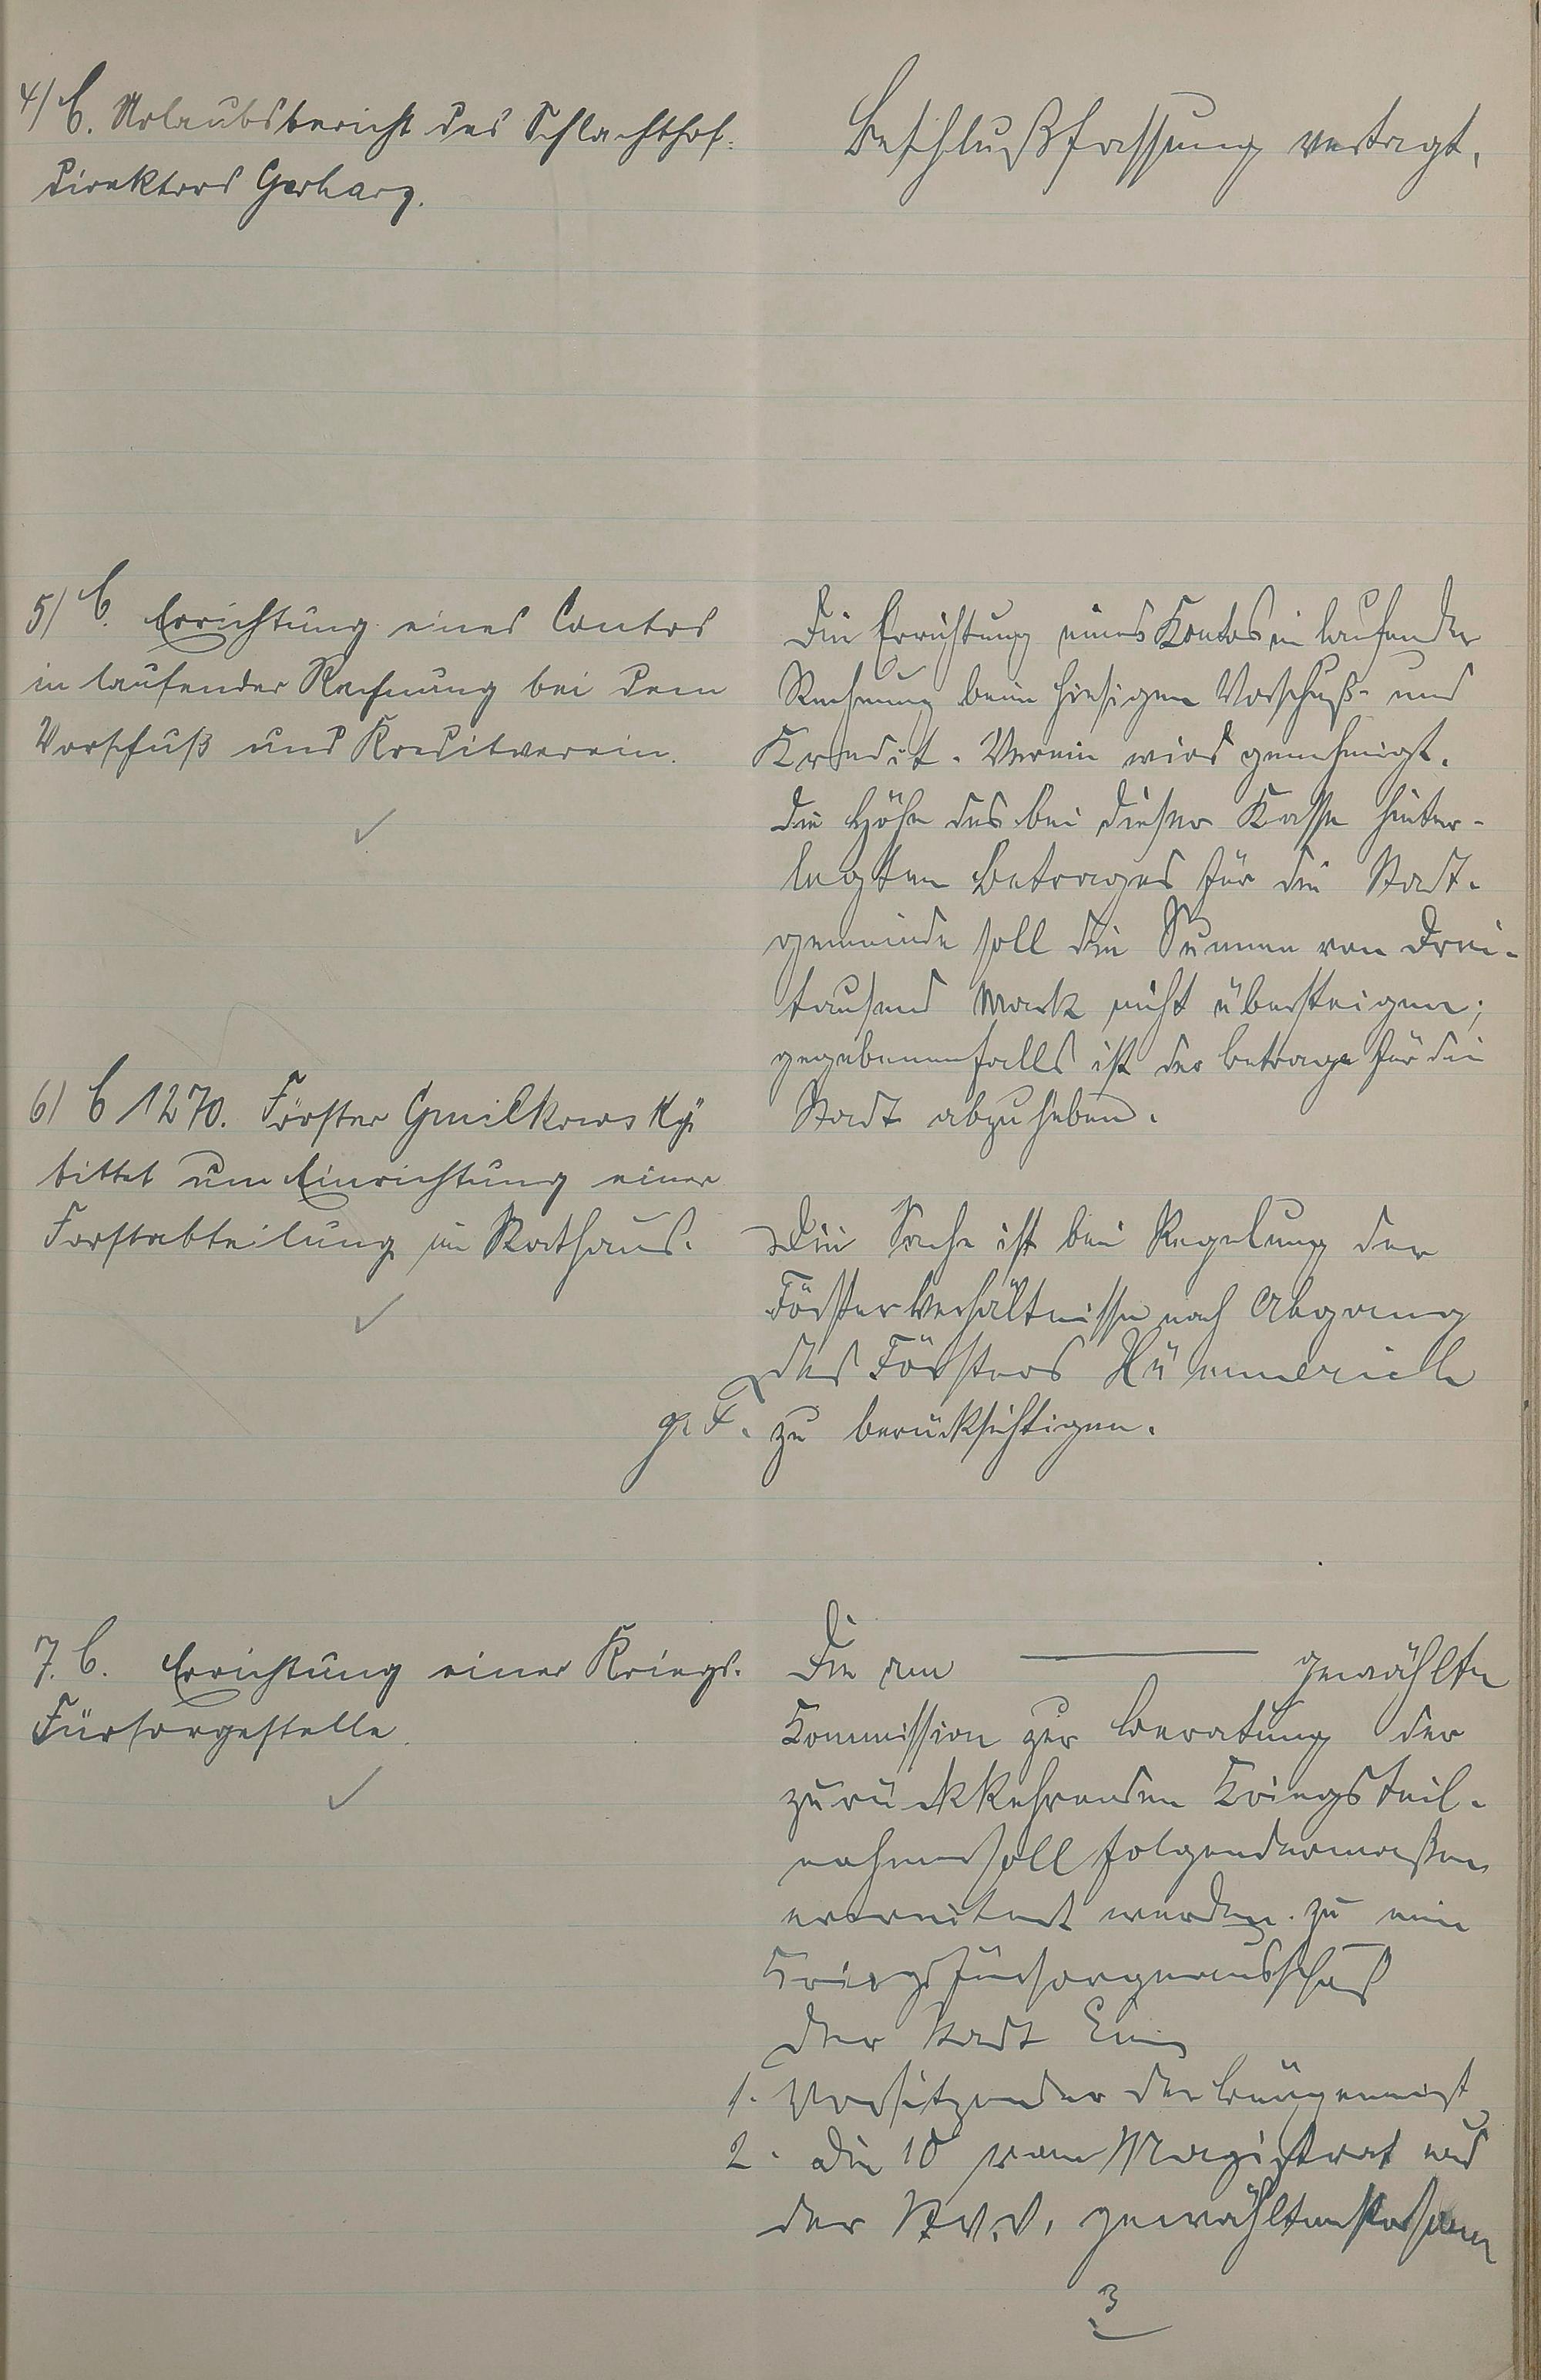 4) C. Urlaubsbericht des Schlachthof-
direktors Gerharz.
Beschlußfassung vertagt.
5) C. Errichtung eines Contos
in laufender Rechnung bei dem
Vorschuß und Kreditverein.
Die Errichtung eines Kontos in laufender
Rechnung beim hiesigen Vorschuß- und
Kredit-Verein wird genehmigt.
Die Höhe des bei dieser Kasse hinter-
legten Betrages für die Stadt-
gemeinde soll die Summe von Drei-
tausend Mark nicht übersteigen;
gegebenenfalls ist der Betrage für die
Stadt abzuheben.
6) C 1270. Förster Gmilkowsky
bittet um Einrichtung einer
Forstabteilung im Rathaus.
Die Sache ist bei Regelung der
Försterverhältnisse nach Abgang
des Försters Hümmerich
g. F. zu berücksichtigen.
7. C. Errichtung einer Kriegs-
Fürsorgestelle.
Die am — gewählte
Kommission zur Beratung der
zurückkehrenden Kriegsteil-
nehmer soll folgendermaßen
erweitert werden zu ein
Kriegsfürsorgeausschuß
der Stadt Ems
1. Vorsitzender der Bürgermst
2. die 10 vom Magistrat und
der St.V.V. gewählten Personen
3